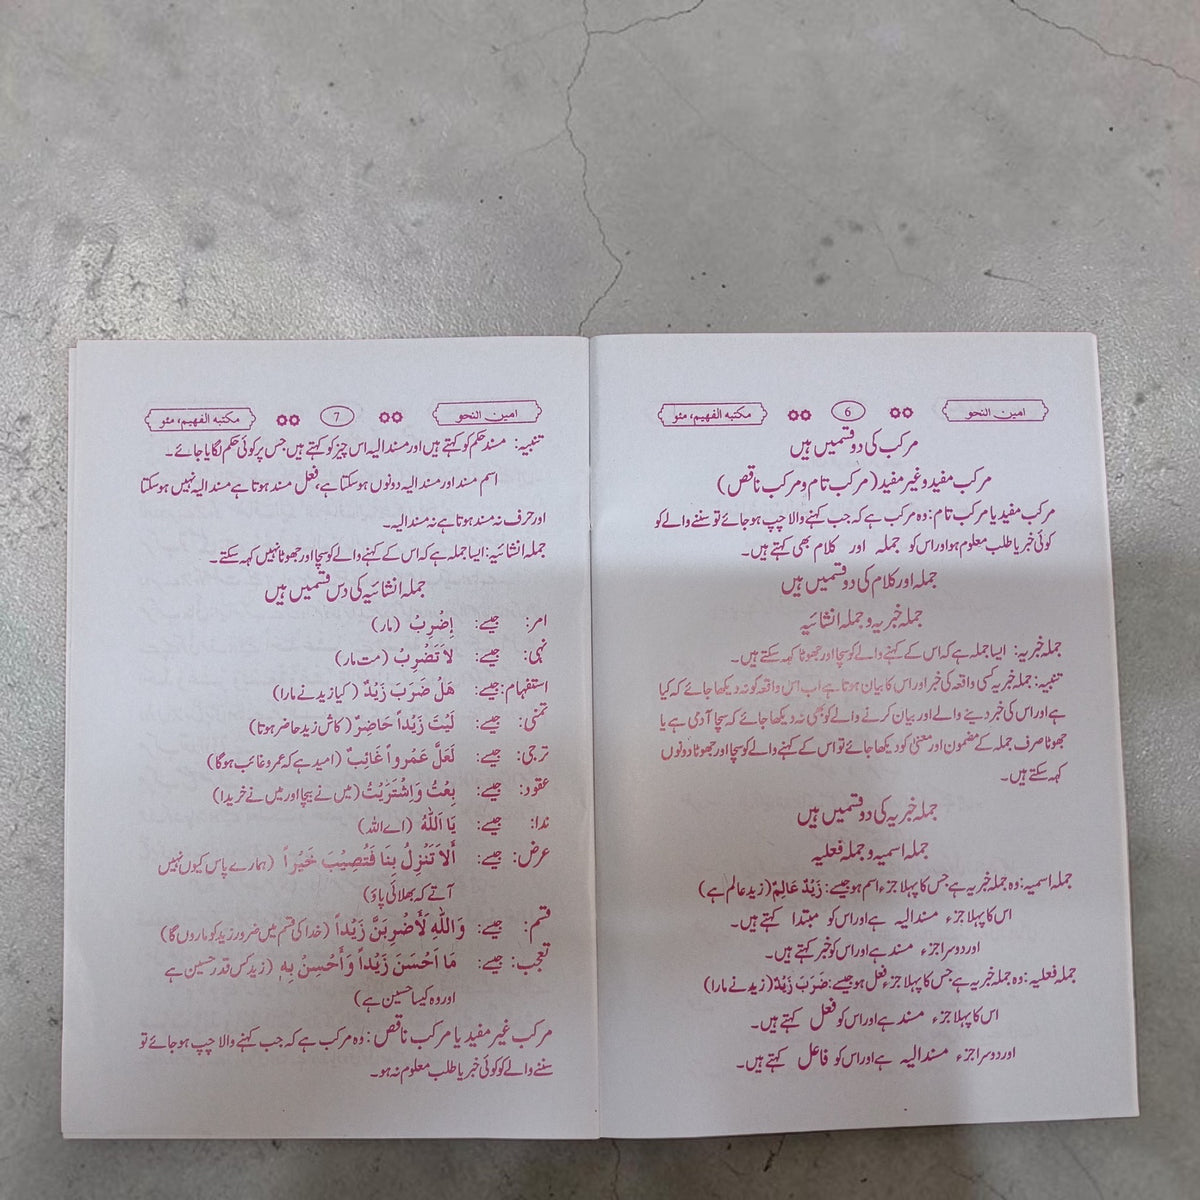 امین النحو
6
مکتبہ الفہیم، مئو
مرکب کی دو قسمیں ہیں
مرکب مفید وغیر مفید (مرکب تام و مرکب ناقص)
مرکب مفید یا مرکب تام: وہ مرکب ہے کہ جب کہنے والا چپ ہو جائے تو سننے والے کو
کوئی خبر یا طلب معلوم ہو اور اس کو جملہ اور کلام بھی کہتے ہیں۔
جملہ اور کلام کی دو قسمیں ہیں
جملہ خبریہ و جملہ انشائیہ
جملہ خبریہ: ایسا جملہ ہے کہ اس کے کہنے والے کو سچا اور جھوٹا کہہ سکتے ہیں۔
تنبیہ: جملہ خبریہ کسی واقعہ کی خبر اور اس کا بیان ہوتا ہے اب اس واقعہ کو نہ دیکھا جائے کہ کیا
ہے اور اس کی خبر دینے والے اور بیان کرنے والے کو بھی نہ دیکھا جائے کہ سچا آدمی ہے یا
جھوٹا صرف جملہ کے مضمون اور معنیٰ کو دیکھا جائے تو اس کے کہنے والے کو سچا اور جھوٹا دونوں
کہہ سکتے ہیں۔
جملہ خبریہ کی دو قسمیں ہیں
جملہ اسمیہ و جملہ فعلیہ
جملہ اسمیہ: وہ جملہ خبریہ ہے جس کا پہلا جزء اسم ہو جیسے: زَیْدٌ عَالِمٌ (زید عالم ہے)
اس کا پہلا جزء مسند الیہ ہے اور اس کو مبتدا کہتے ہیں۔
اور دوسرا جزء مسند ہے اور اس کو خبر کہتے ہیں۔
جملہ فعلیہ: وہ جملہ خبریہ ہے جس کا پہلا جزء فعل ہو جیسے: ضَرَبَ زَیْدٌ (زید نے مارا)
اس کا پہلا جزء مسند ہے اور اس کو فعل کہتے ہیں۔
اور دوسرا جزء مسند الیہ ہے اور اس کو فاعل کہتے ہیں۔
امین النحو
7
مکتبہ الفہیم، مئو
تنبیہ: مسند حکم کو کہتے ہیں اور مسند الیہ اس چیز کو کہتے ہیں جس پر کوئی حکم لگایا جائے۔
اسم مسند اور مسند الیہ دونوں ہو سکتا ہے، فعل مسند ہوتا ہے مسند الیہ نہیں ہو سکتا
اور حرف نہ مسند ہوتا ہے نہ مسند الیہ۔
جملہ انشائیہ: ایسا جملہ ہے کہ اس کے کہنے والے کو سچا اور جھوٹا نہیں کہہ سکتے۔
جملہ انشائیہ کی دس قسمیں ہیں
امر: جیسے: اِضْرِبْ (مار)
نہی: جیسے: لاَ تَضْرِبْ (مت مار)
استفہام: جیسے: هَلْ ضَرَبَ زَیْدٌ (کیا زید نے مارا)
تمنی: جیسے: لَیْتَ زَیْداً حَاضِرٌ (کاش زید حاضر ہوتا)
ترجی: جیسے: لَعَلَّ عَمْرواً غَائِبٌ (امید ہے کہ عمرو غائب ہوگا)
عقود: جیسے: بِعْتُ وَاِشْتَرَیْتُ (میں نے بیچا اور میں نے خریدا)
ندا: جیسے: یَا اَللّٰهُ (اے اللہ)
عرض: جیسے: أَلاَ تَنْزِلُ بِنَا فَتُصِیْبَ خَیْراً (ہمارے پاس کیوں نہیں
آتے کہ بھلائی پاؤ)
قسم: جیسے: وَاللّٰهِ لَأَضْرِبَنَّ زَیْداً (خدا کی قسم میں ضرور زید کو ماروں گا)
تعجب: جیسے: مَا اَحْسَنَ زَیْداً وَأَحْسِنْ بِهٖ (زید کس قدر حسین ہے
اور وہ کیسا حسین ہے)
مرکب غیر مفید یا مرکب ناقص: وہ مرکب ہے کہ جب کہنے والا چپ ہو جائے تو
سننے والے کو کوئی خبر یا طلب معلوم نہ ہو۔